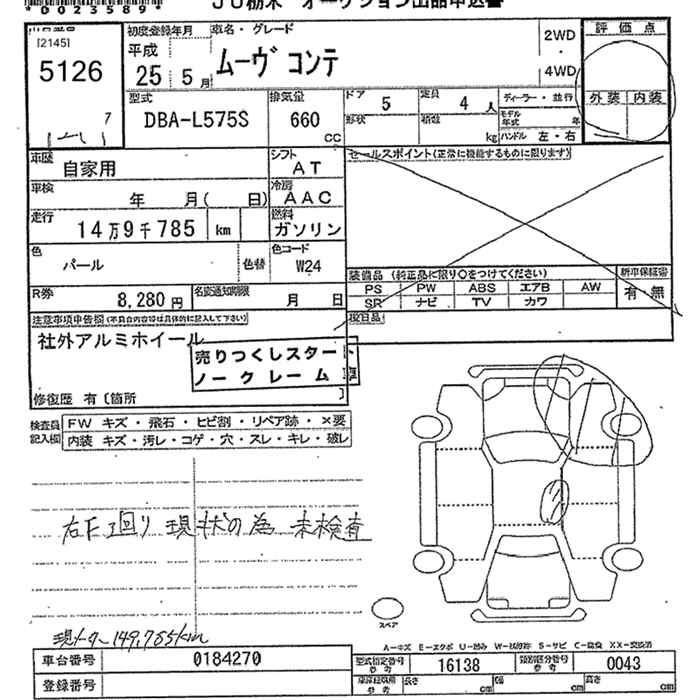 *0023589*
JU栃木 オークション出品申込書
[2145]
5126
7
初度登録年月
平成
25年 5月
車名・グレード
ムーヴ コンテ
2WD
・
4WD
評価点
外装 内装
型式
DBA-L575S
排気量
660
CC
ドア 5
定員 4人
形状
積載 kg
ディーラー・並行
モデル年式 年
ハンドル 左・右
車歴 自家用
シフト AT
車検 年 月( 日)
冷房 AAC
走行 14万9千785 km
燃料 ガソリン
色 パール
色替
色コード W24
R券 8,280円
名変通知期限 月 日
セールスポイント(正常に機能するものに限ります)
装備品 (純正品に限り○をつけてください)
PS PW ABS エアB AW
SR ナビ TV カワ
新車保証書
有・無
後日品
注意事項申告欄(不具合内容等は具体的に記入して下さい)
社外アルミホイール
売りつくしスタート
ノークレーム 車
修復歴 有〔箇所 〕
検査員記入欄
FW キズ・飛石・ヒビ割・リペア跡・×要
内装 キズ・汚レ・コゲ・穴・スレ・キレ・破レ
右F廻り 現状の為 未検査
現メーター 149,785km
スペア
A-キズ E-エクボ U-凹み W-波 S-サビ C-腐食 XX-交換済
車台番号 0184270
登録番号
型式指定番号 参考 16138
類別区分番号 参考 0043
長さ cm 幅 cm 高さ cm
参考